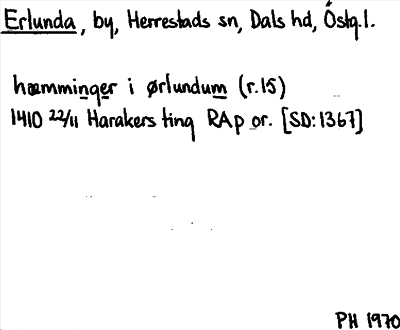 Erlunda, by, Herrestads sn, Dals hd, Östg.l.
hæmminger i ørlundum (r.15)
1410 22/11 Harakers ting RAp or. [SD:1367]
PH 1970